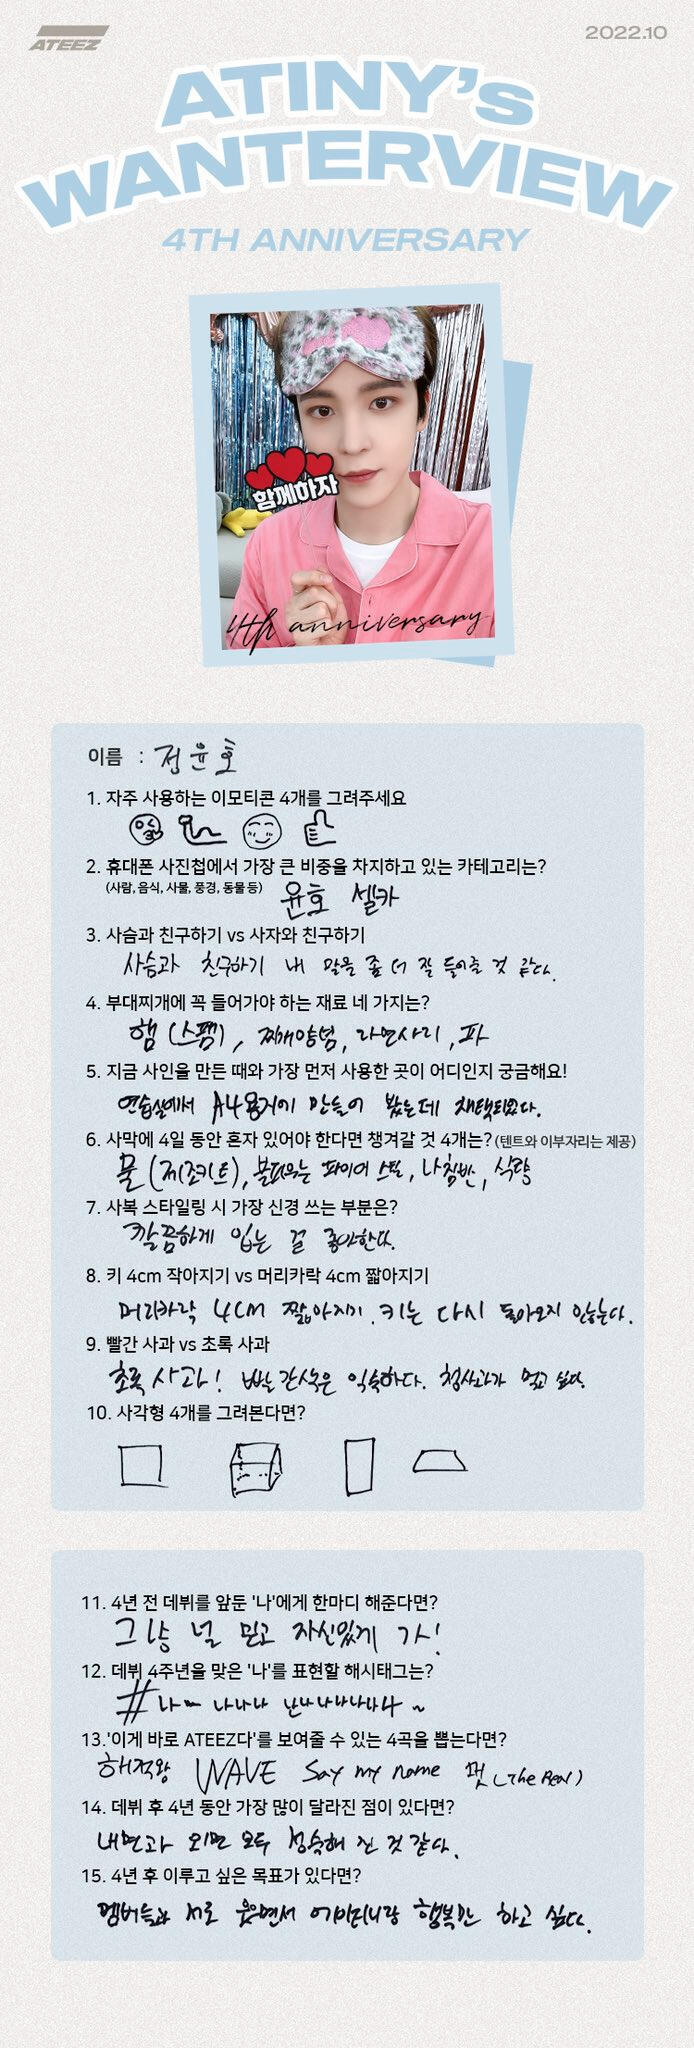 ATEEZ
2022.10
ATINY's
WANTERVIEW
4TH ANNIVERSARY
함께하자
4th anniversary
이름 : 정윤호
1. 자주 사용하는 이모티콘 4개를 그려주세요
2. 휴대폰 사진첩에서 가장 큰 비중을 차지하고 있는 카테고리는?
(사람, 음식, 사물, 풍경, 동물 등)
윤호 셀카
3. 사슴과 친구하기 vs 사자와 친구하기
사슴과 친구하기 내 말을 좀 더 잘 들어줄 것 같다.
4. 부대찌개에 꼭 들어가야 하는 재료 네 가지는?
햄(스팸), 찌개양념, 라면사리, 파
5. 지금 사인을 만든 때와 가장 먼저 사용한 곳이 어디인지 궁금해요!
연습실에서 A4용지에 만들어 봤는데 채택되었다.
6. 사막에 4일 동안 혼자 있어야 한다면 챙겨갈 것 4개는? (텐트와 이부자리는 제공)
물(제조키트), 불피우는 파이어 스틸, 나침반, 식량
7. 사복 스타일링 시 가장 신경 쓰는 부분은?
깔끔하게 입는 걸 좋아한다.
8. 키 4cm 작아지기 vs 머리카락 4cm 짧아지기
머리카락 4CM 짧아지기. 키는 다시 돌아오지 않는다.
9. 빨간 사과 vs 초록 사과
초록 사과! 빨간색은 익숙하다. 청사과가 먹고 싶다.
10. 사각형 4개를 그려본다면?
11. 4년 전 데뷔를 앞둔 '나'에게 한마디 해준다면?
그냥 널 믿고 자신있게 가!
12. 데뷔 4주년을 맞은 '나'를 표현할 해시태그는?
#나~ 나나나 난나나나나나 ~
13.'이게 바로 ATEEZ다'를 보여줄 수 있는 4곡을 뽑는다면?
해적왕 WAVE Say my name 멋(The Real)
14. 데뷔 후 4년 동안 가장 많이 달라진 점이 있다면?
내면과 외면 모두 성숙해 진 것 같다.
15. 4년 후 이루고 싶은 목표가 있다면?
멤버들과 서로 웃으면서 에이티니랑 행복만 하고 싶다.